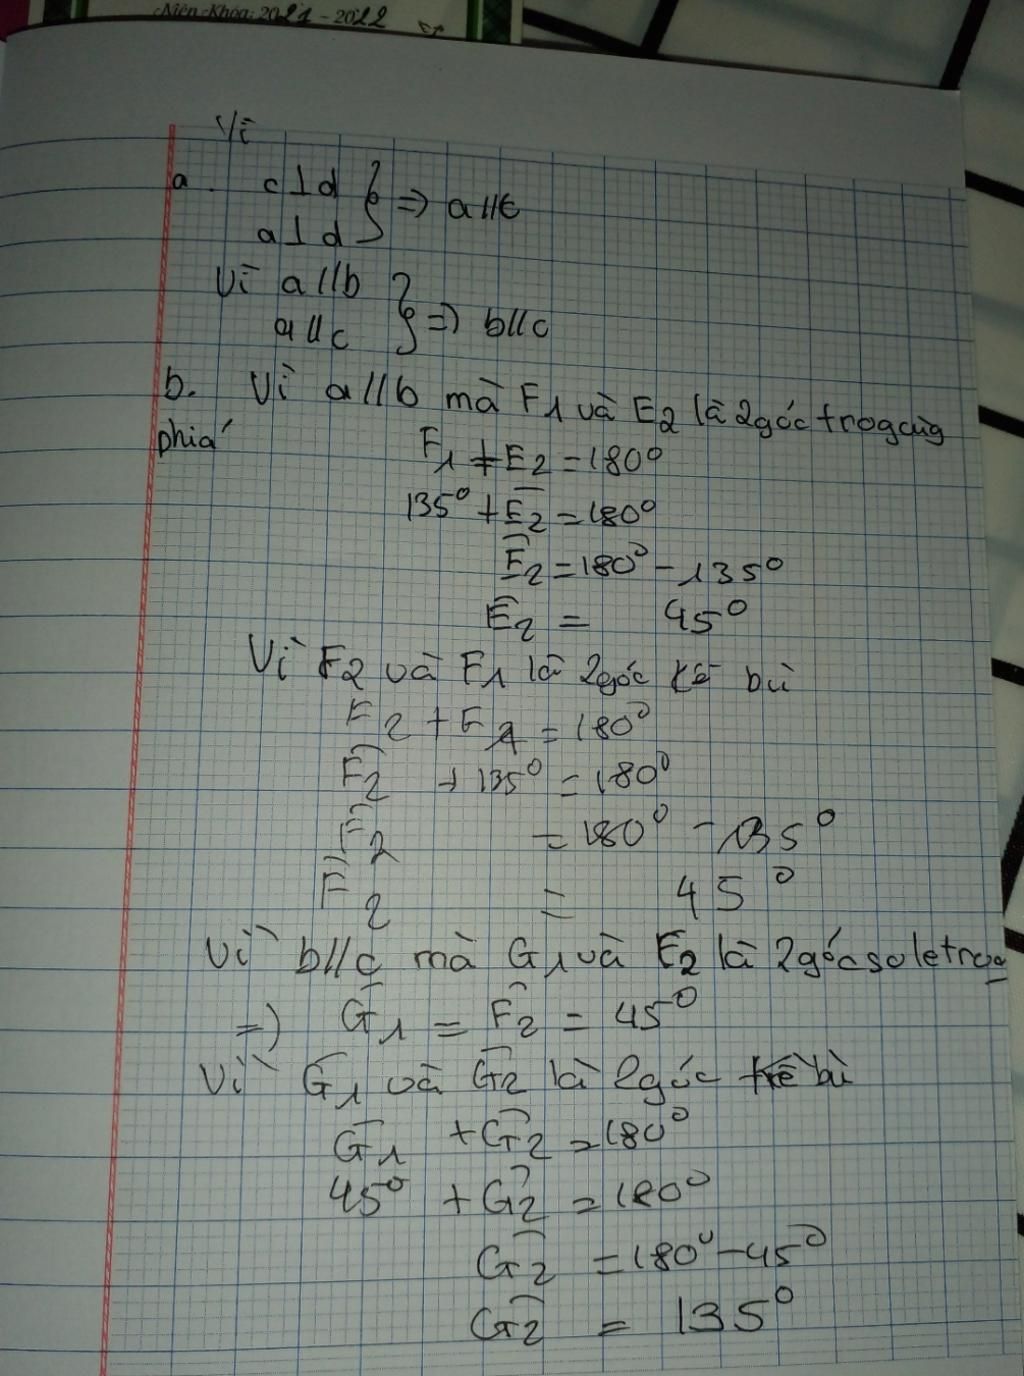 Niên Khóa: 2021 - 2022
Vì
a. c⊥d } => a//c
a⊥d
Vì a//b } => b//c
a//c
b. Vì a//b mà F1 và E2 là 2 góc trog cùg
phía
F1 + E2 = 180°
135° + E2 = 180°
E2 = 180° - 135°
E2 = 45°
Vì F2 và F1 là 2 góc kề bù
F2 + F1 = 180°
F2 + 135° = 180°
F2 = 180° - 135°
F2 = 45°
Vì b//c mà G1 và F2 là 2 góc so le trog
=> G1 = F2 = 45°
Vì G1 và G2 là 2 góc kề bù
G1 + G2 = 180°
45° + G2 = 180°
G2 = 180° - 45°
G2 = 135°